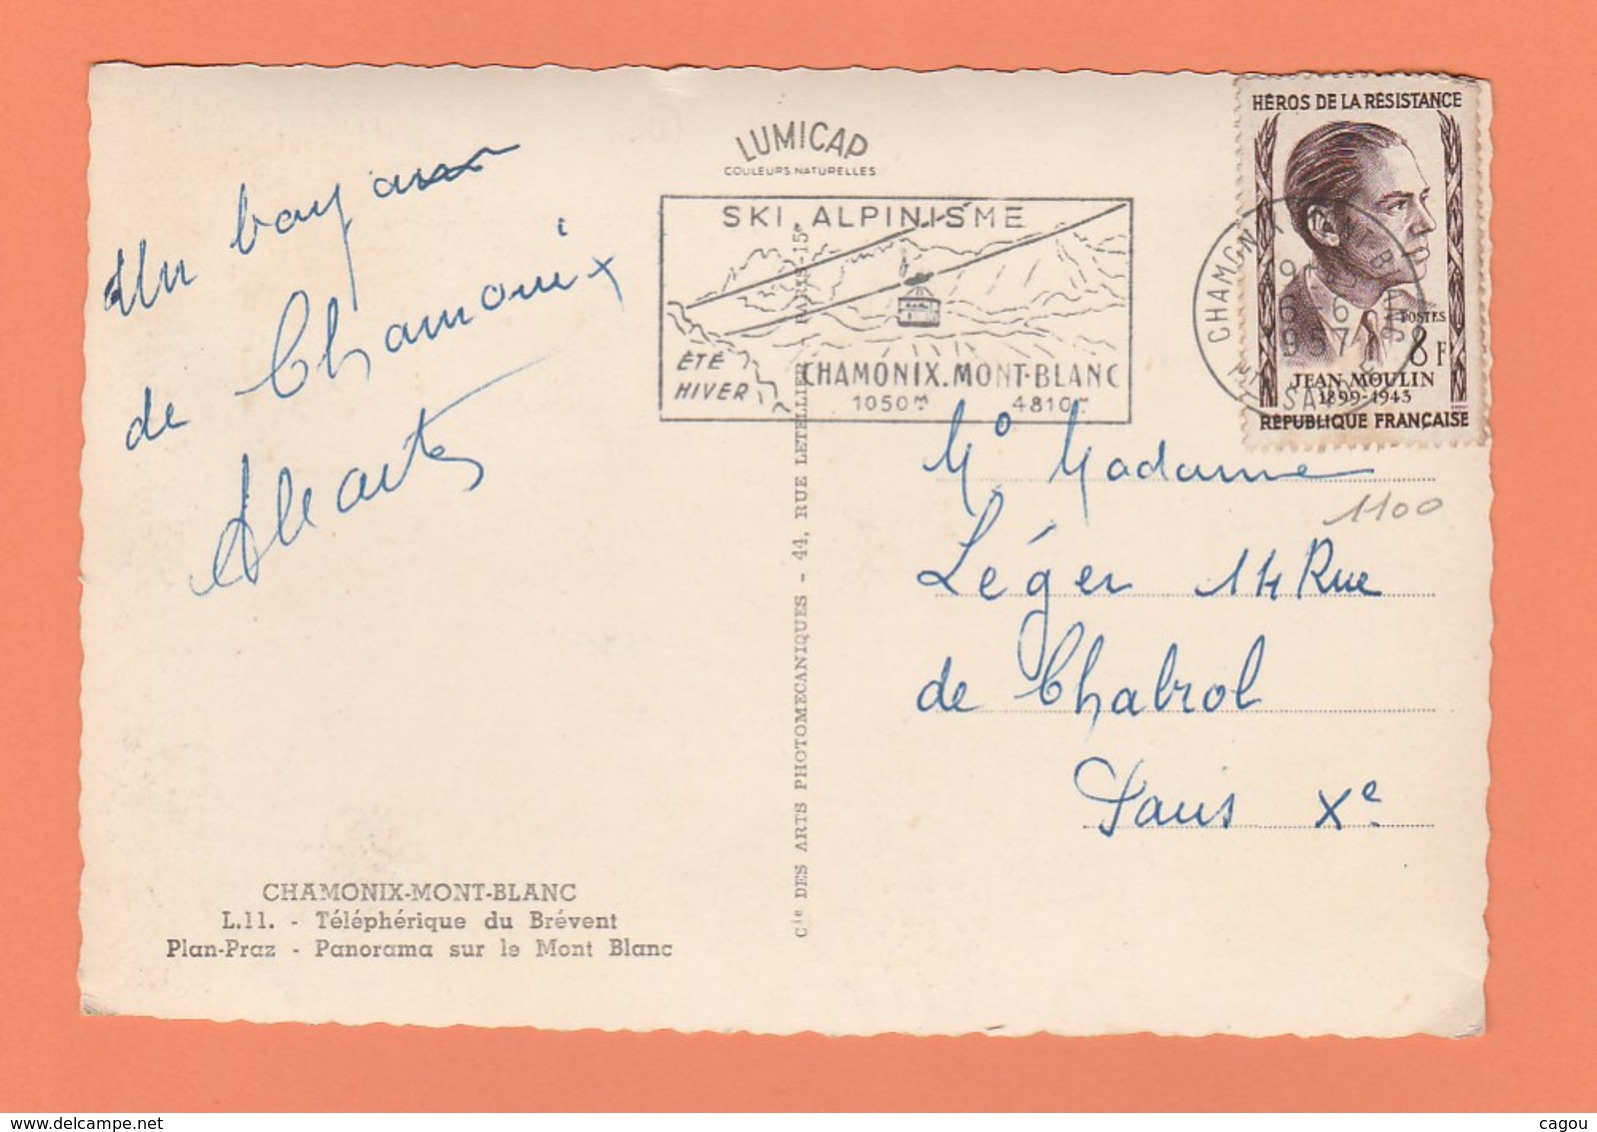 LUMICAP
COULEURS NATURELLES
Un bonjour
de Chamonix
SKI, ALPINISME
ÉTÉ
HIVER
CHAMONIX.MONT-BLANC
1050m 4810m
HÉROS DE LA RÉSISTANCE
POSTES
8F
JEAN MOULIN
1899-1943
RÉPUBLIQUE FRANÇAISE
CHAMONIX MT BLANC
1957
Madame
1100
Léger 14 Rue
de Chabrol
Paris Xe
Cie DES ARTS PHOTOMECANIQUES - 44, RUE LETELLIER PARIS-15e
CHAMONIX-MONT-BLANC
L.11. - Téléphérique du Brévent
Plan-Praz - Panorama sur le Mont Blanc
cagou